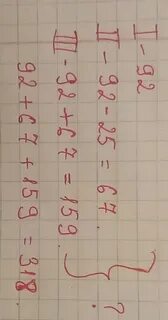 I - 92
II - 92 - 25 = 67
III - 92 + 67 = 159
?
92 + 67 + 159 = 318